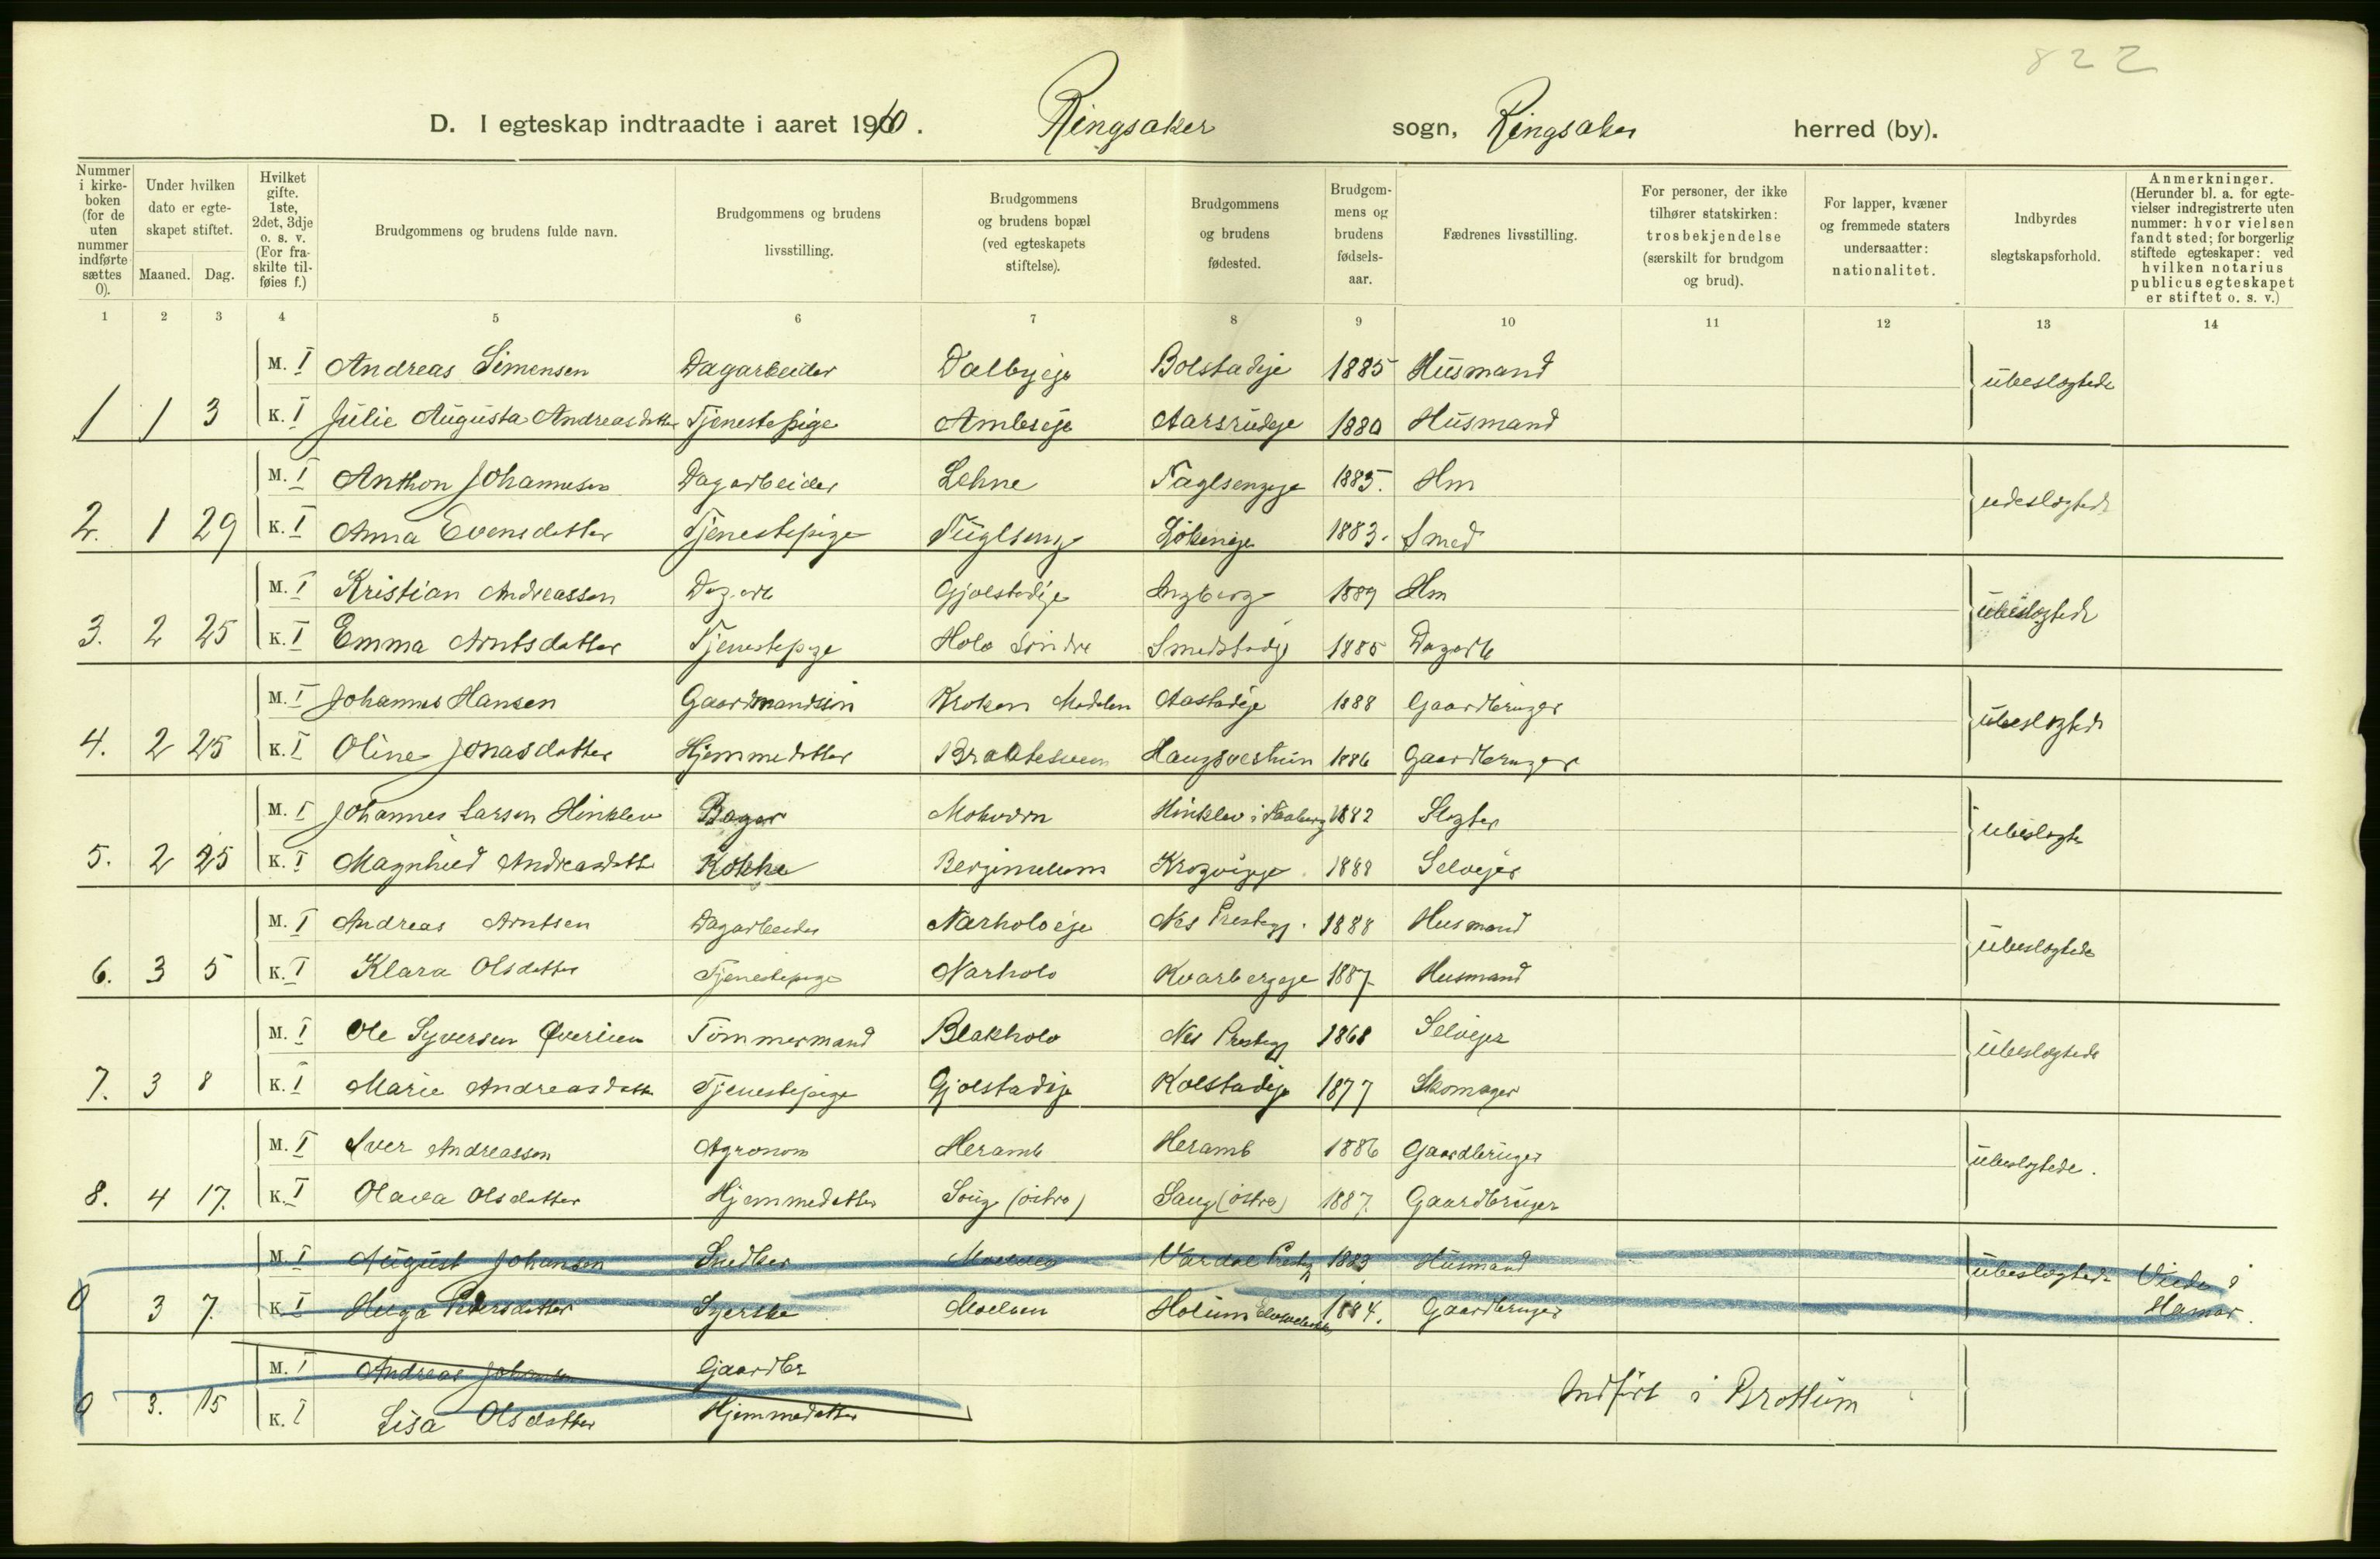 822
D. I egteskap indtraadte i aaret 1910. Ringsaker sogn, Ringsaker herred (by).
Nummer i kirkeboken (for de uten nummer indførte sættes 0).
Under hvilken dato er egteskapet stiftet.
Maaned. Dag.
Hvilket gifte. 1ste, 2det, 3dje o. s. v. (For fraskilte tilføies f.)
Brudgommens og brudens fulde navn.
Brudgommens og brudens livsstilling.
Brudgommens og brudens bopæl (ved egteskapets stiftelse).
Brudgommens og brudens fødested.
Brudgommens og brudens fødselsaar.
Fædrenes livsstilling.
For personer, der ikke tilhører statskirken: trosbekjendelse (særskilt for brudgom og brud).
For lapper, kvæner og fremmede staters undersaatter: nationalitet.
Indbyrdes slegtskapsforhold.
Anmerkninger. (Herunder bl. a. for egtevielser indregistrerte uten nummer: hvor vielsen fandt sted; for borgerlig stiftede egteskaper: ved hvilken notarius publicus egteskapet er stiftet o. s. v.)
1 2 3 4 5 6 7 8 9 10 11 12 13 14
M. I Andreas Simensen Dagarbeider Dalbyeje Bolstadeje 1885 Husmand ubeslægtede
1 1 3 K. I Julie Augusta Andreasdatter Tjenestepige Ambseje Aarsrudeje 1880 Husmand
M. I Anthon Johannesen Dagarbeider Lehne 1885. Hm
2. 1 29 K. I Anna Evensdatter Tjenestepige 1883. Smed
M. I Kristian Andreassen Dagarb Gjølstadeje 1889 Hm ubeslægtede
3. 2 25 K. I Emma Arntsdatter Tjenestepige Holo Søndre Smedstadeje 1885 Dagarb
M. I Johannes Hansen Gaardmandssøn Kroken Aastadeje 1888 Gaardbruger ubeslægtede
4. 2 25 K. I Oline Jonasdatter Hjemmedatter Haugsvestuen 1886 Gaardbruger
M. I Johannes Larsen Hinklev Bager Hinklev i Faaberg 1882 Slagter
5. 2 25 K. I Magnhild Andreasdatter Kokke 1888 Selveier
M. I Andreas Arntsen Dagarbeider Narholoeje Nes Prestegj. 1888 Husmand ubeslægtede
6. 3 5 K. I Klara Olsdatter Tjenestepige Narholo Kvarbergeje 1887 Husmand
M. I Ole Syversen Øverlien Tømmermand Blakholo Nes Prestegj 1868 Selveier ubeslægtede
7. 3 8 K. I Marie Andreasdatter Tjenestepige Gjølstadeje Kolstadeje 1877 Skomager
M. I Iver Andreassen Agronom Heramb Heramb 1886 Gaardbruger ubeslægtede.
8. 4 17. K. I Olava Olsdatter Hjemmedatter Saug (østre) Saug (østre) 1887. Gaardbruger
M. I August Johansen Snedker Moelven Vardal Prestegj 1883 Husmand ubeslægtede Viede i
0 3 7. K. I Helga Pedersdatter Syerske Moelven Holum 1884. Gaardbruger Hamar.
M. I Andreas Johansen Gaardbr
0 3. 15 K. I Lisa Olsdatter Hjemmedatter Indført i Brøttum